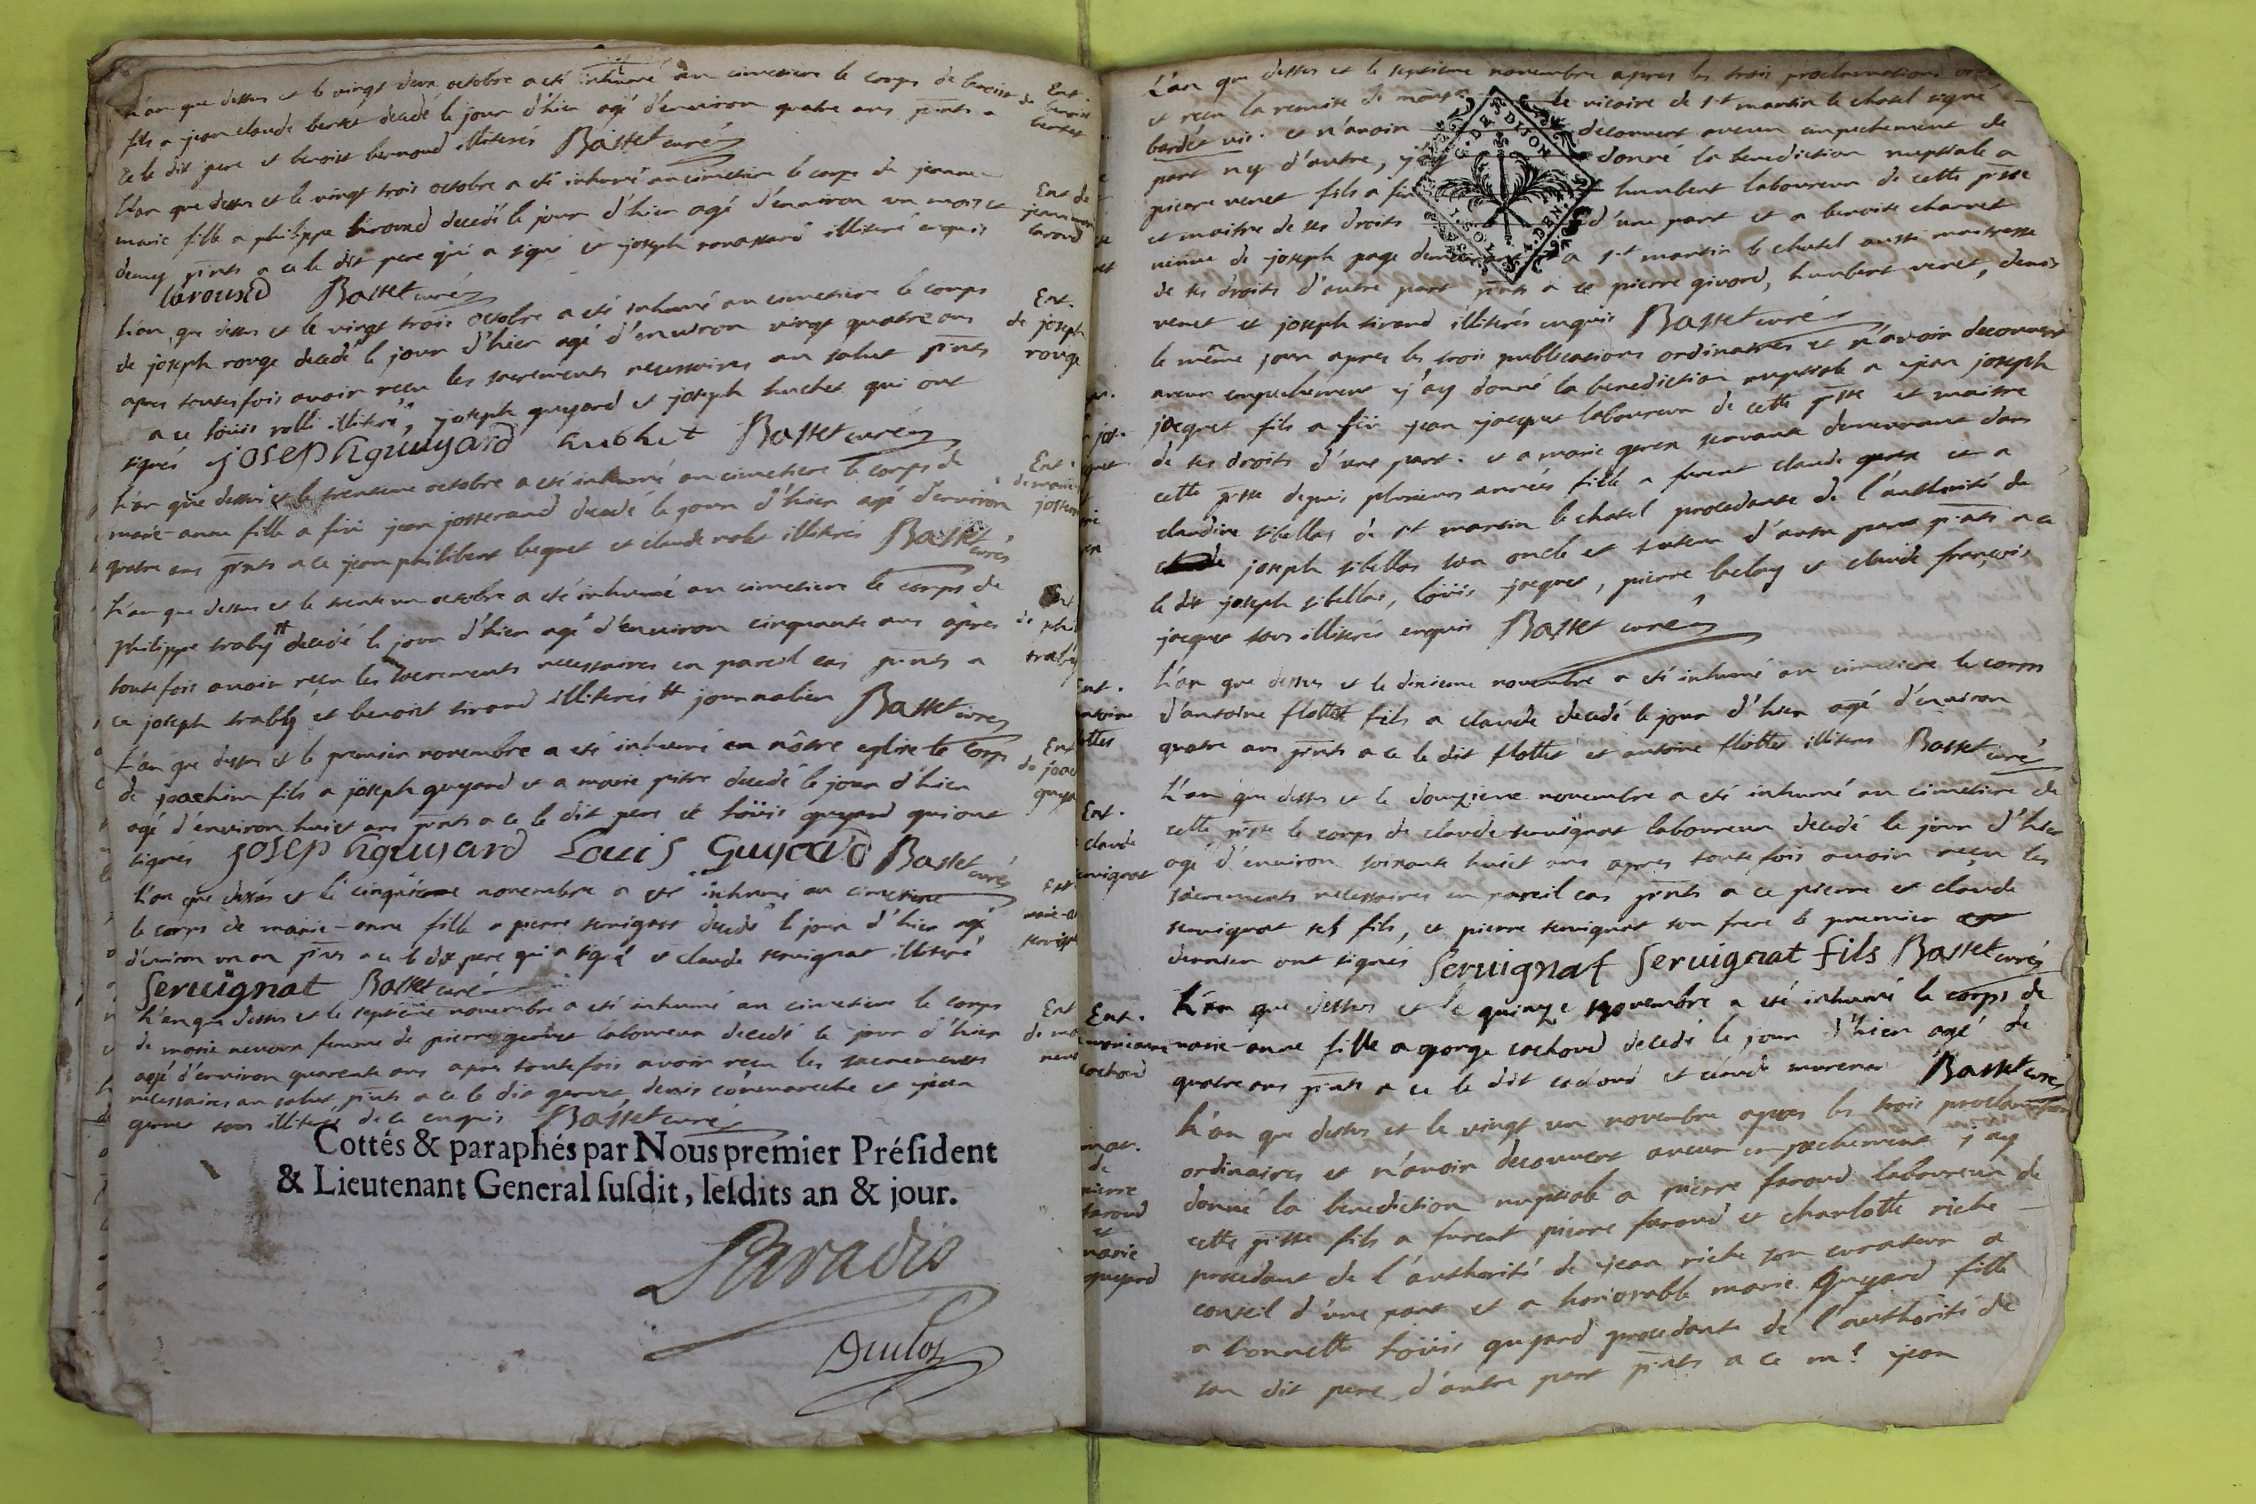 L'an que dessus et le vingt deux octobre a eté inhumé au cimetiere le corps de benoist
fils a jean claude bertet decedé le jour d'hier agé d'environ quatre ans pnts a
ce le dit pere et benoist bernoud illiterés Basset curé
Ent.
benoist
bertet
L'an que dessus et le vingt trois octobre a eté inhumé au cimetiere le corps de jeanne
marie fille a philippe laround decedé le jour d'hier agé d'environ un mois et
demy pnts a ce le dit pere qui a signé et joseph illiteré enquis
laround Basset curé
Ent de
jeanne
L'an que dessus et le vingt trois octobre a eté inhumé au cimetiere le corps
de joseph rouge decedé le jour d'hier agé d'environ vingt quatre ans
apres toutesfois avoir reçu les sacrements necessaires au salut pnts
a ce loüis rolli illiteré, joseph guyard et joseph huchet qui ont
signés joseph guyard huchet Basset curé
Ent.
de joseph
rouge
L'an que dessus et le trentieme octobre a eté inhumé au cimetiere le corps de
marie-anne fille a feu jean josserand decedé le jour d'hier agé d'environ
quatre ans pnts a ce jean philibert et claude illiterés Basset curé
Ent.
de marie
josser
L'an que dessus et le trente un octobre a eté inhumé au cimetiere le corps de
philippe trably # decedé le jour d'hier agé d'environ cinquante ans apres
toutefois avoir reçu les sacrements necessaires en pareil cas pnts a
ce joseph trably et benoist tirand illiterés # journalier Basset curé
Ent
de phi
trably
L'an que dessus et le premier novembre a eté inhumé en nôtre eglise le corps
de joachim fils a joseph guyard et a marie pitre decedé le jour d'hier
agé d'environ huict ans pnts a ce le dit pere et loüis guyard qui ont
signés joseph guyard Louis Guyard Basset curé
Ent
de joac
guya
L'an que dessus et le cinquieme novembre a eté inhumé au cimetiere
le corps de marie-anne fille a pierre servignat decedé le jour d'hier agé
d'environ un an pnts a ce le dit pere qui a signé et claude servignat illiteré
Servignat Basset curé
Ent
marie-a
servign
L'an que dessus et le septieme novembre a eté inhumé au cimetiere le corps
de marie neveur femme de pierre laboureur decedé le jour d'hier
agé d'environ quarente ans apres toutefois avoir reçu les sacrements
necessaires au salut pnts a ce le dit denis et jean
tous illiterés de ce enquis Basset curé
Ent
de ma
neve
Cottés & paraphés par Nous premier Préſident
& Lieutenant General ſuſdit, leſdits an & jour.
Paradis
Duclos
L'an que dessus et le septieme novembre apres les trois proclamations
et reçu la remise de le vicaire de st martin le chatel signé
et n'avoir decouvert aucun empechement de
part ny d'autre, j'ay donné la benediction nuptiale a
pierre venet fils a feu humbert laboureur de cette psse
et maitre de ses droits d'une part et a benoite charvet
veuve de joseph page demeurant a st martin le chatel aussi maitresse
de ses droits d'autre part pnts a ce pierre givord, humbert venet, denis
venet et joseph tirand illiterés enquis Basset curé
le même jour apres les trois publications ordinaires et n'avoir decouvert
aucun empechement j'ay donné la benediction nuptiale a jean joseph
jacquet fils a feu jean jacquet laboureur de cette psse et maitre
de ses droits d'une part. et a marie servante demeurant dans
cette psse depuis plusieurs années fille a furent claude et a
claudine tibellas de st martin le chatel procedante de l'authorité de
joseph tibellas son oncle et tuteur d'autre part pnts a ce
le dit joseph tibellas, loüis jacquet, pierre et claude françois
jacquet tous illiterés enquis Basset curé
L'an que dessus et le dixieme novembre a eté inhumé au cimetiere le corps
d'antoine flottet fils a claude decedé le jour d'hier agé d'environ
quatre ans pnts a ce le dit flottet et antoine flottet illiterés Basset curé
Ent.
antoine
ottet
L'an que dessus et le douzieme novembre a eté inhumé au cimetiere de
cette psse le corps de claude servignat laboureur decedé le jour d'hier
agé d'environ soixante huict ans apres toutefois avoir reçu les
sacrements necessaires en pareil cas pnts a ce pierre et claude
servignat ses fils, et pierre servignat son frere le premier
dernier ont signés Servignat Servignat fils Basset curé
Ent.
claude
ervignat
L'an que dessus et le quinze novembre a eté inhumé le corps de
marie-anne fille a george cochoud decedé le jour d'hier agé de
quatre ans pnts a ce le dit cochoud et claude Basset curé
Ent.
marieanne
cochoud
L'an que dessus et le vingt un novembre apres les trois proclamations
ordinaires et n'avoir decouvert aucun empechement j'ay
donné la benediction nuptiale a pierre faroud laboureur de
cette psse fils a furent pierre faroud et charlotte riche
procedant de l'authorité de jean riche son curateur a
conseil d'une part et a honorable marie Guyard fille
a honnette loüis guyard procedante de l'authorité de
son dit pere d'autre part pnts a ce mr jean
mar.
de
pierre
faroud
et
marie
guyard